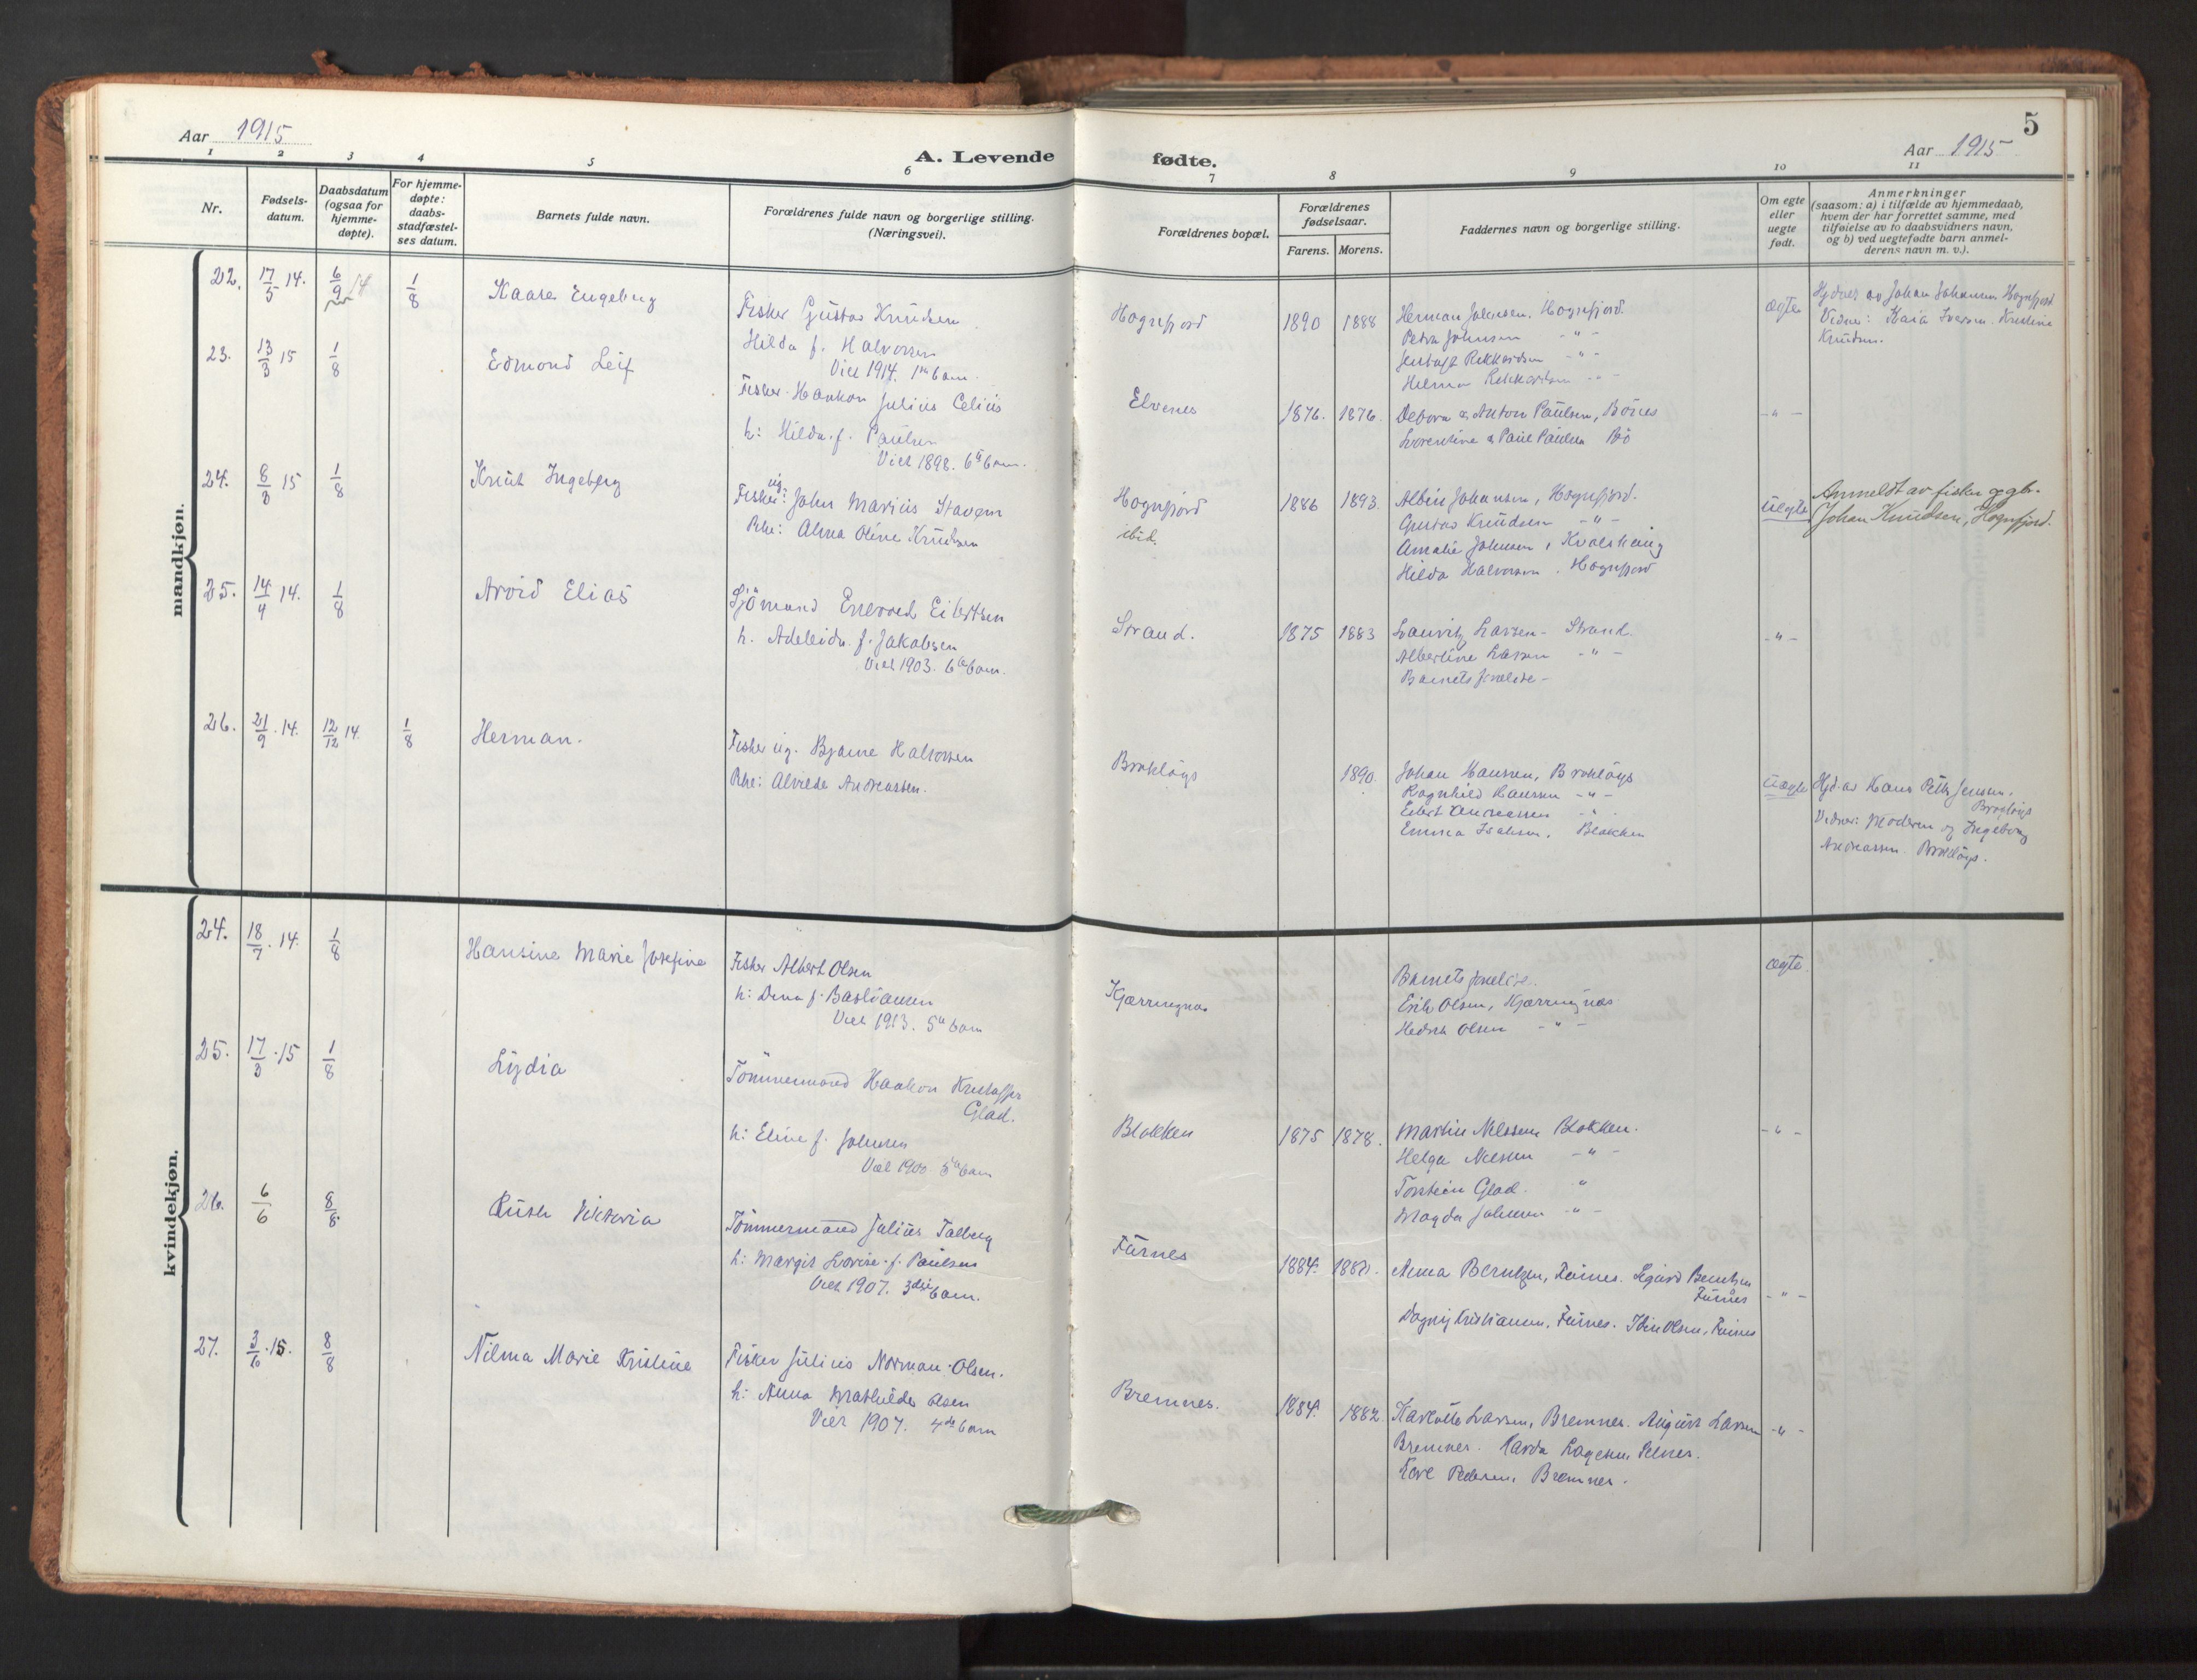 Aar 1915
A. Levende
1 2 3 4 5 6
Nr.
Fødsels-
datum.
Daabsdatum
(ogsaa for
hjemme-
døpte).
For hjemme-
døpte:
daabs-
stadfæstel-
ses datum.
Barnets fulde navn.
Forældrenes fulde navn og borgerlige stilling.
(Næringsvei).
mandkjøn.
22. 17/5 14. 6/9 14 1/8 Kaare Engeberg
Fisker Gustav Knudsen
Hilda f. Halvorsen
Viet 1914. 1ste barn.
23. 13/3 15 1/8 Edmond Leif
Fisker Haakon Julius Celius
h: Hilda f. Paulsen
Viet 1898. 6te barn.
24. 8/3 15 1/8 Knut Ingeberg
Fisker ug: John Marius Stavem
Pike: Alma Oline Knudsen
25. 14/4 14. 1/8 Arvid Elias
Sjömand Enevold Eibertsen
h. Adeleide f. Jakobsen
Viet 1903. 6te barn.
26. 21/9 14. 12/12 14. 1/8 Herman.
Fisker ug. Bjarne Halvorsen
Pike: Alvilde Andreassen.
kvindekjøn.
24. 18/7 14. 1/8 Hansine Marie Josefine
Fisker Albert Olsen
h: Dina f. Bastiansen
Viet 1913. 5te barn
25. 17/3 15 1/8 Lydia
Tömmermand Haakon Kristoffer
Glad.
h: Eline f. Johnsen
Viet 1900 5te barn
26. 6/6 8/8. Ruth Viktoria
Tömmermand Julius Talberg
h: Margit Lovise f. Paulsen
Viet 1907. 3die barn.
27. 3/6 15. 8/8 Nilma Marie Kristine
Fisker Julius Norman Olsen.
h: Anna Mathilde Olsen
Viet 1907. 4de barn
5
Aar 1915
fødte.
7 8 9 10 11
Forældrenes bopæl.
Forældrenes
fødselsaar.
Farens. Morens.
Faddernes navn og borgerlige stilling.
Om egte
eller
uegte
født.
Anmerkninger
(saasom: a) i tilfælde av hjemmedaab,
hvem der har forrettet samme, med
tilføielse av to daabsvidners navn,
og b) ved uegtefødte barn anmel-
derens navn m. v.).
Hognfjord 1890 1888 Herman Johnsen. Hognfjord.
Petra Johnsen - " -
Gustav Rikkardsen - " -
Helma Rikkardsen - " -
ægte
Hjdøpt av Johan Johansen Hognfjord
Vidner: Kaia Iversen. Kristine
Knudsen.
Elvenes 1876. 1876. Debora & Anton Paulsen, Börnes
Lorentine & Paul Paulsen Bö
- " -
Hognfjord
ibid.
1886 1893. Albin Johansen, Hognfjord.
Gustav Knudsen - " -
Amalie Johnsen, Kvalshaug
Hilda Halvorsen. Hognfjord
Uegte
Anmeldt av fisker og gbr.
Johan Knudsen, Hognfjord.
Strand. 1875 1883 Lauritz Larsen - Strand.
Albertine Larsen - " -
Barnets forældre -
- " -
Brokløys 1890. Johan Hansen, Brokløys
Ragnhild Hansen - " -
Eibert Andreassen - " -
Emma Isaksen, Blokken
Uægte
Hjd. av Hans Petter Jensen.
Brokløys
Vidner: Moderen og Ingeborg
Andreassen. Brokløys.
Kjærringnes
Barnets forældre.
Erik Olsen, Kjærringnes
Hedvik Olsen - " -
ægte
Blokken 1875 1878. Martin Nilssen Blokken.
Helga Nilsen - " -
Torstein Glad. "
Magda Johnsen - " -
- " -
Furnes 1884. Anna Berntzen, Furnes. Sigurd Berntzen
Furnes
Dagny Kristiansen, Furnes. Olsen, Furnes
- " -
Bremnes. 1884. 1882. Karlotte Larsen, Bremnes. August Larsen
Bremnes. Selnes.
Kare Pedersen, Bremnes.
- " -